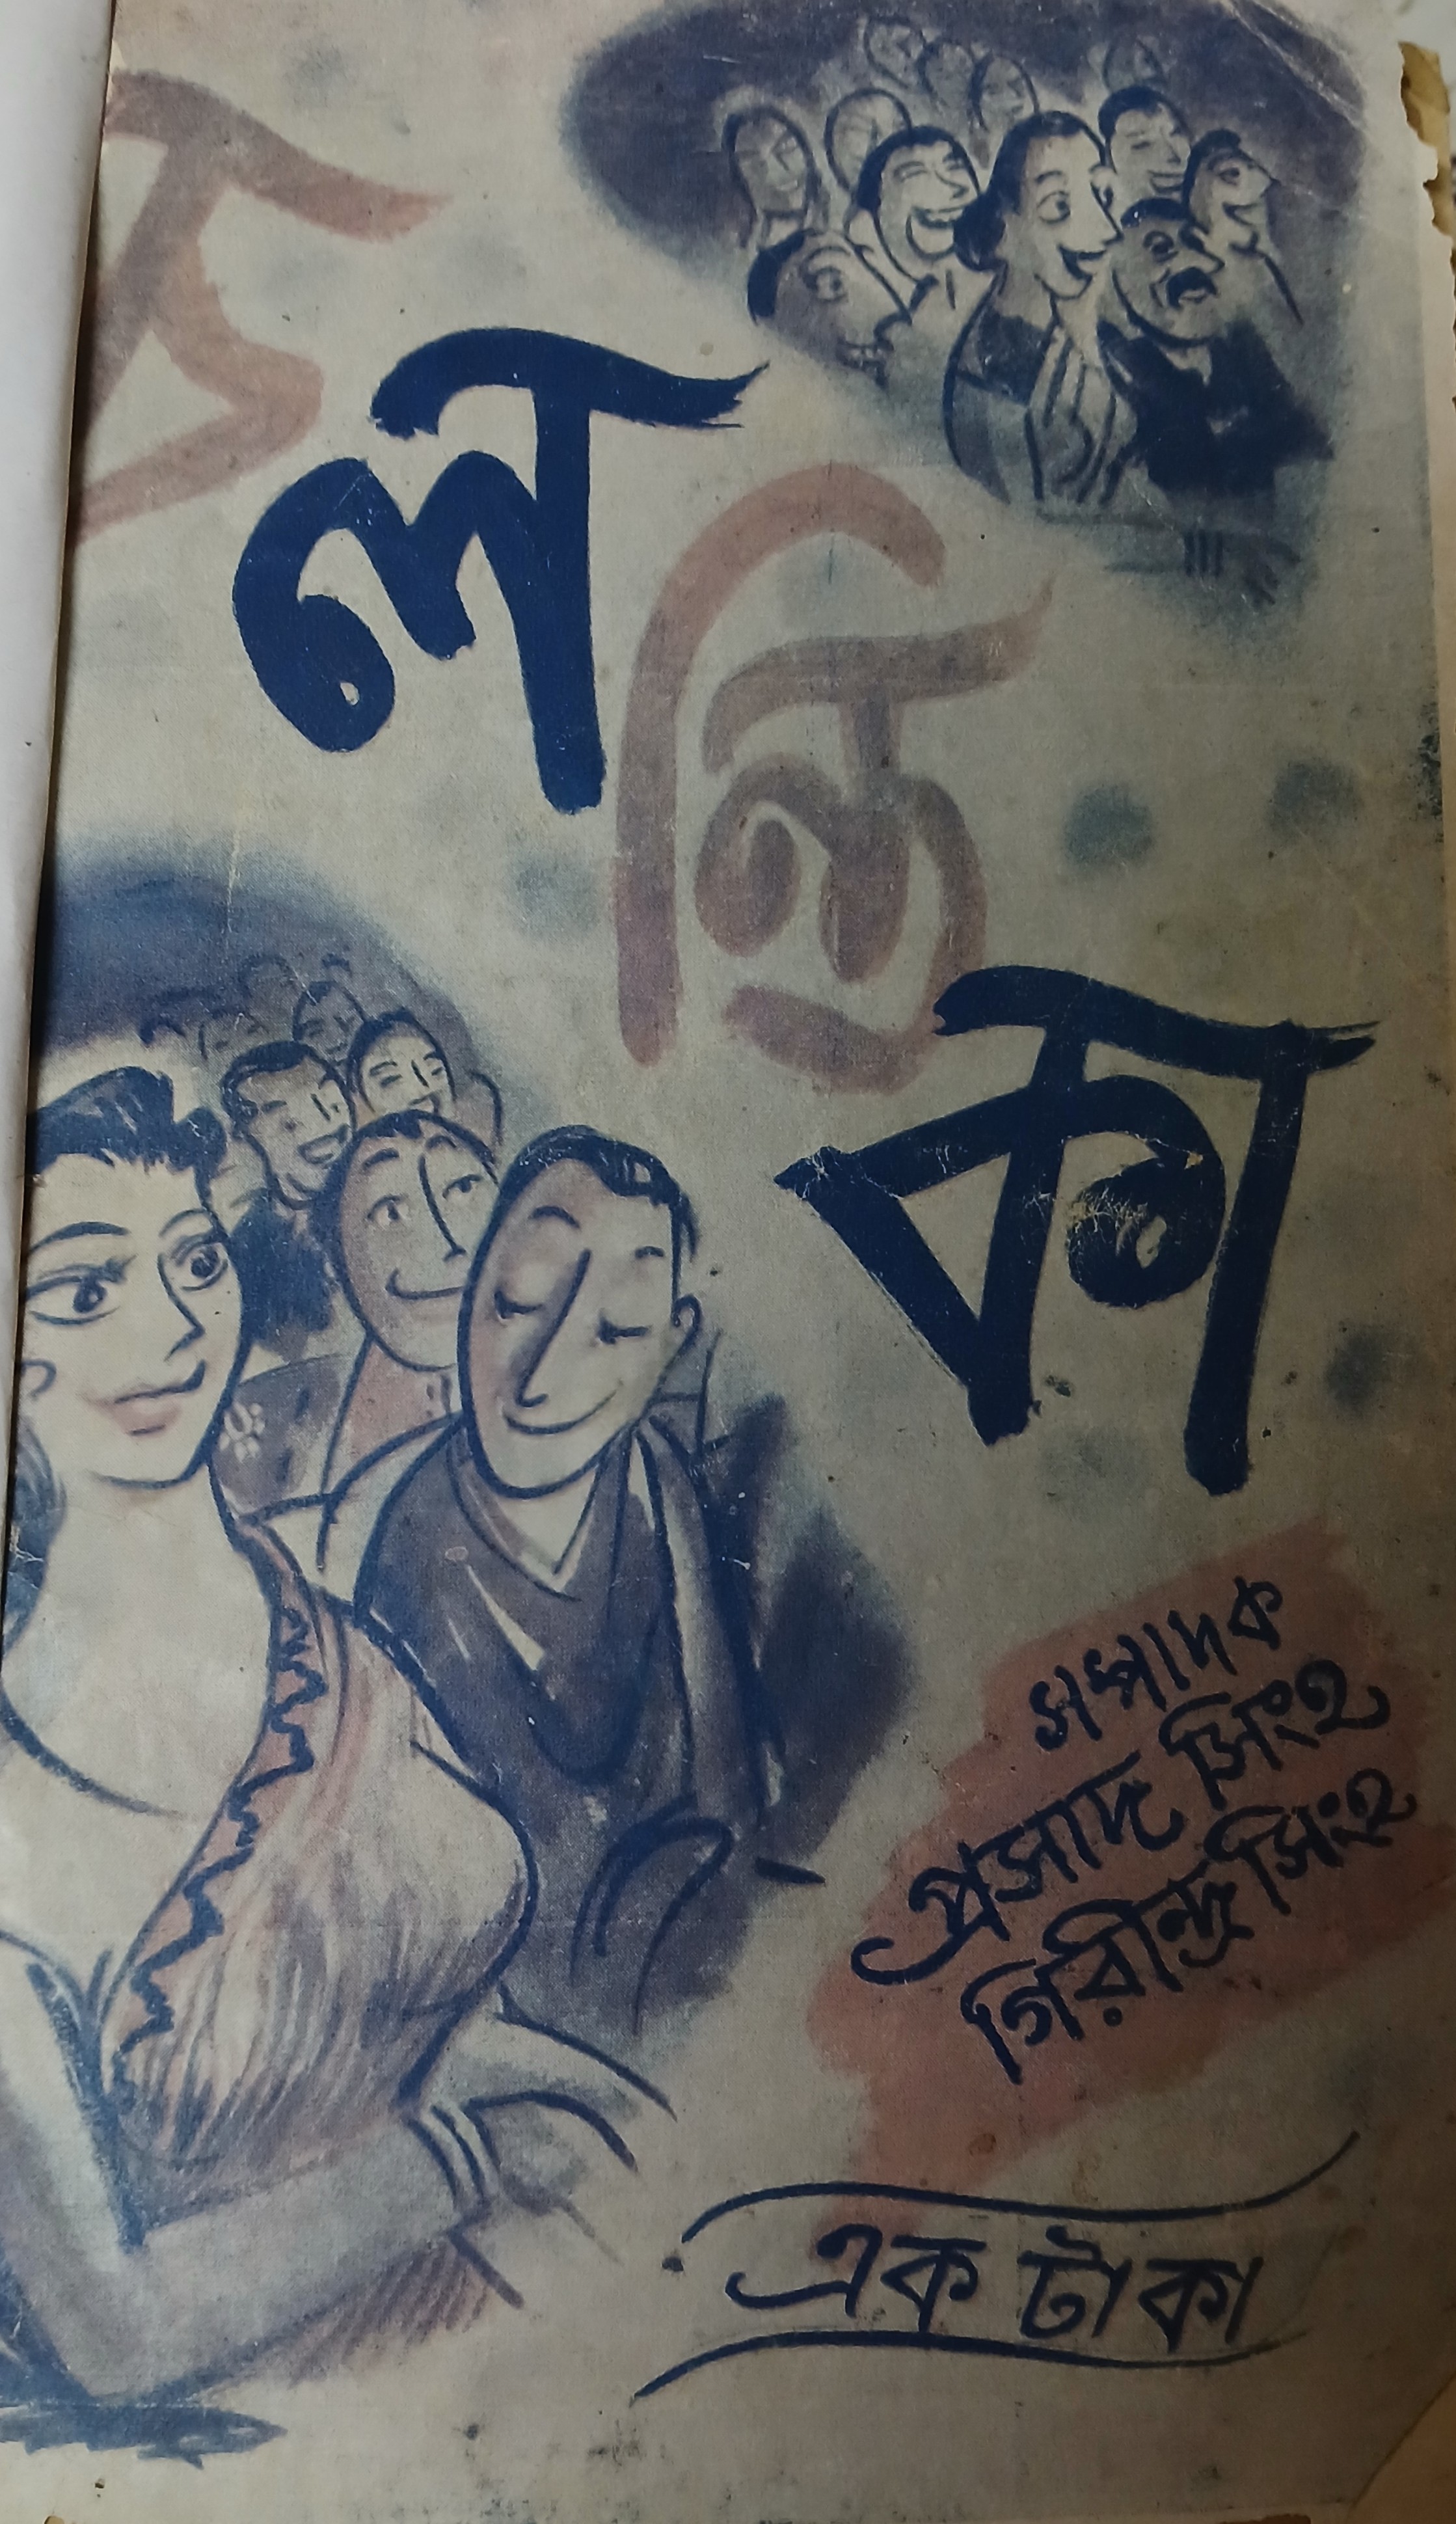 চলন্তিকা
সম্পাদক
প্রসাদ সিংহ
গিরীন্দ্র সিংহ
এক টাকা